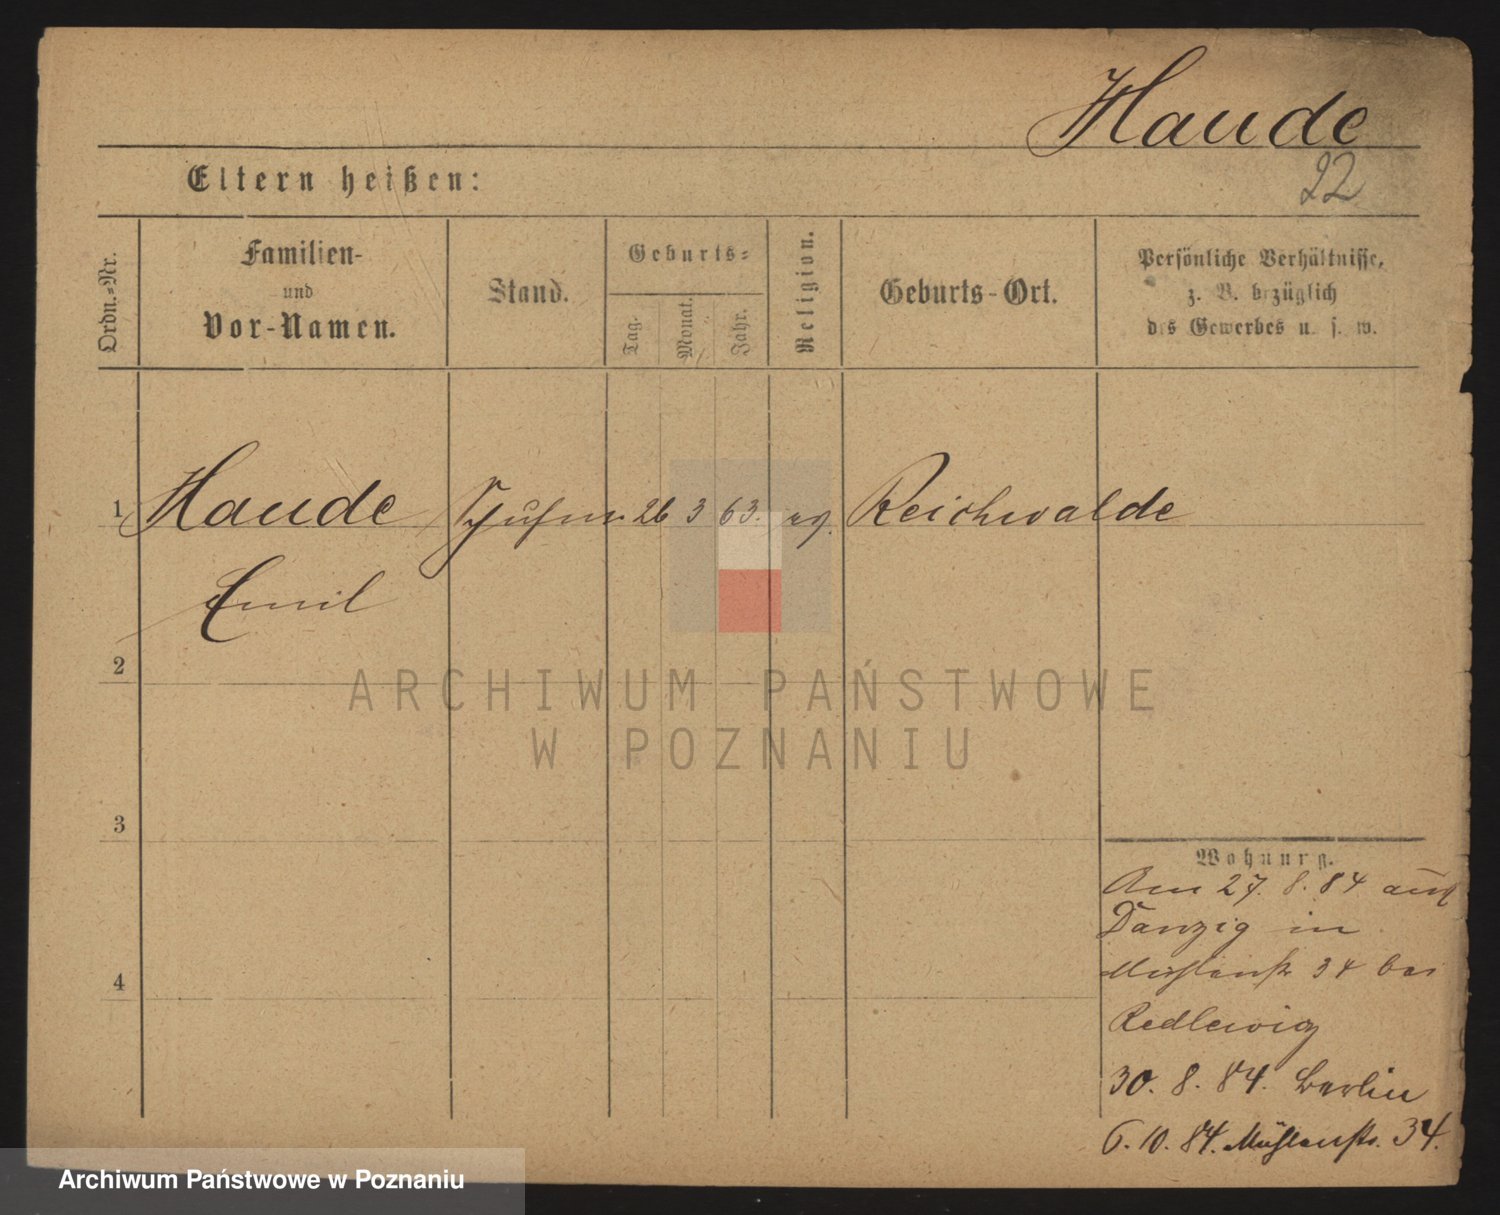 Haude
22
Eltern heißen:
Ordn.-Nr.
Familien-
und
Vor-Namen.
Stand.
Geburts-
Tag.
Monat.
Jahr.
Religion.
Geburts-Ort.
Persönliche Verhältnisse,
z. B. bezüglich
des Gewerbes u. s. w.
1 Haude 26 3 63. ev. Reichwalde
Emil
2
3
4
ARCHIWUM PAŃSTWOWE
W POZNANIU
Wohnung.
Am 27. 8. 84 aus
Danzig in
Mühlenstr 34 bei
Redlewig
30. 8. 84. Berlin
6. 10. 84. Mühlenstr. 34.
Archiwum Państwowe w Poznaniu